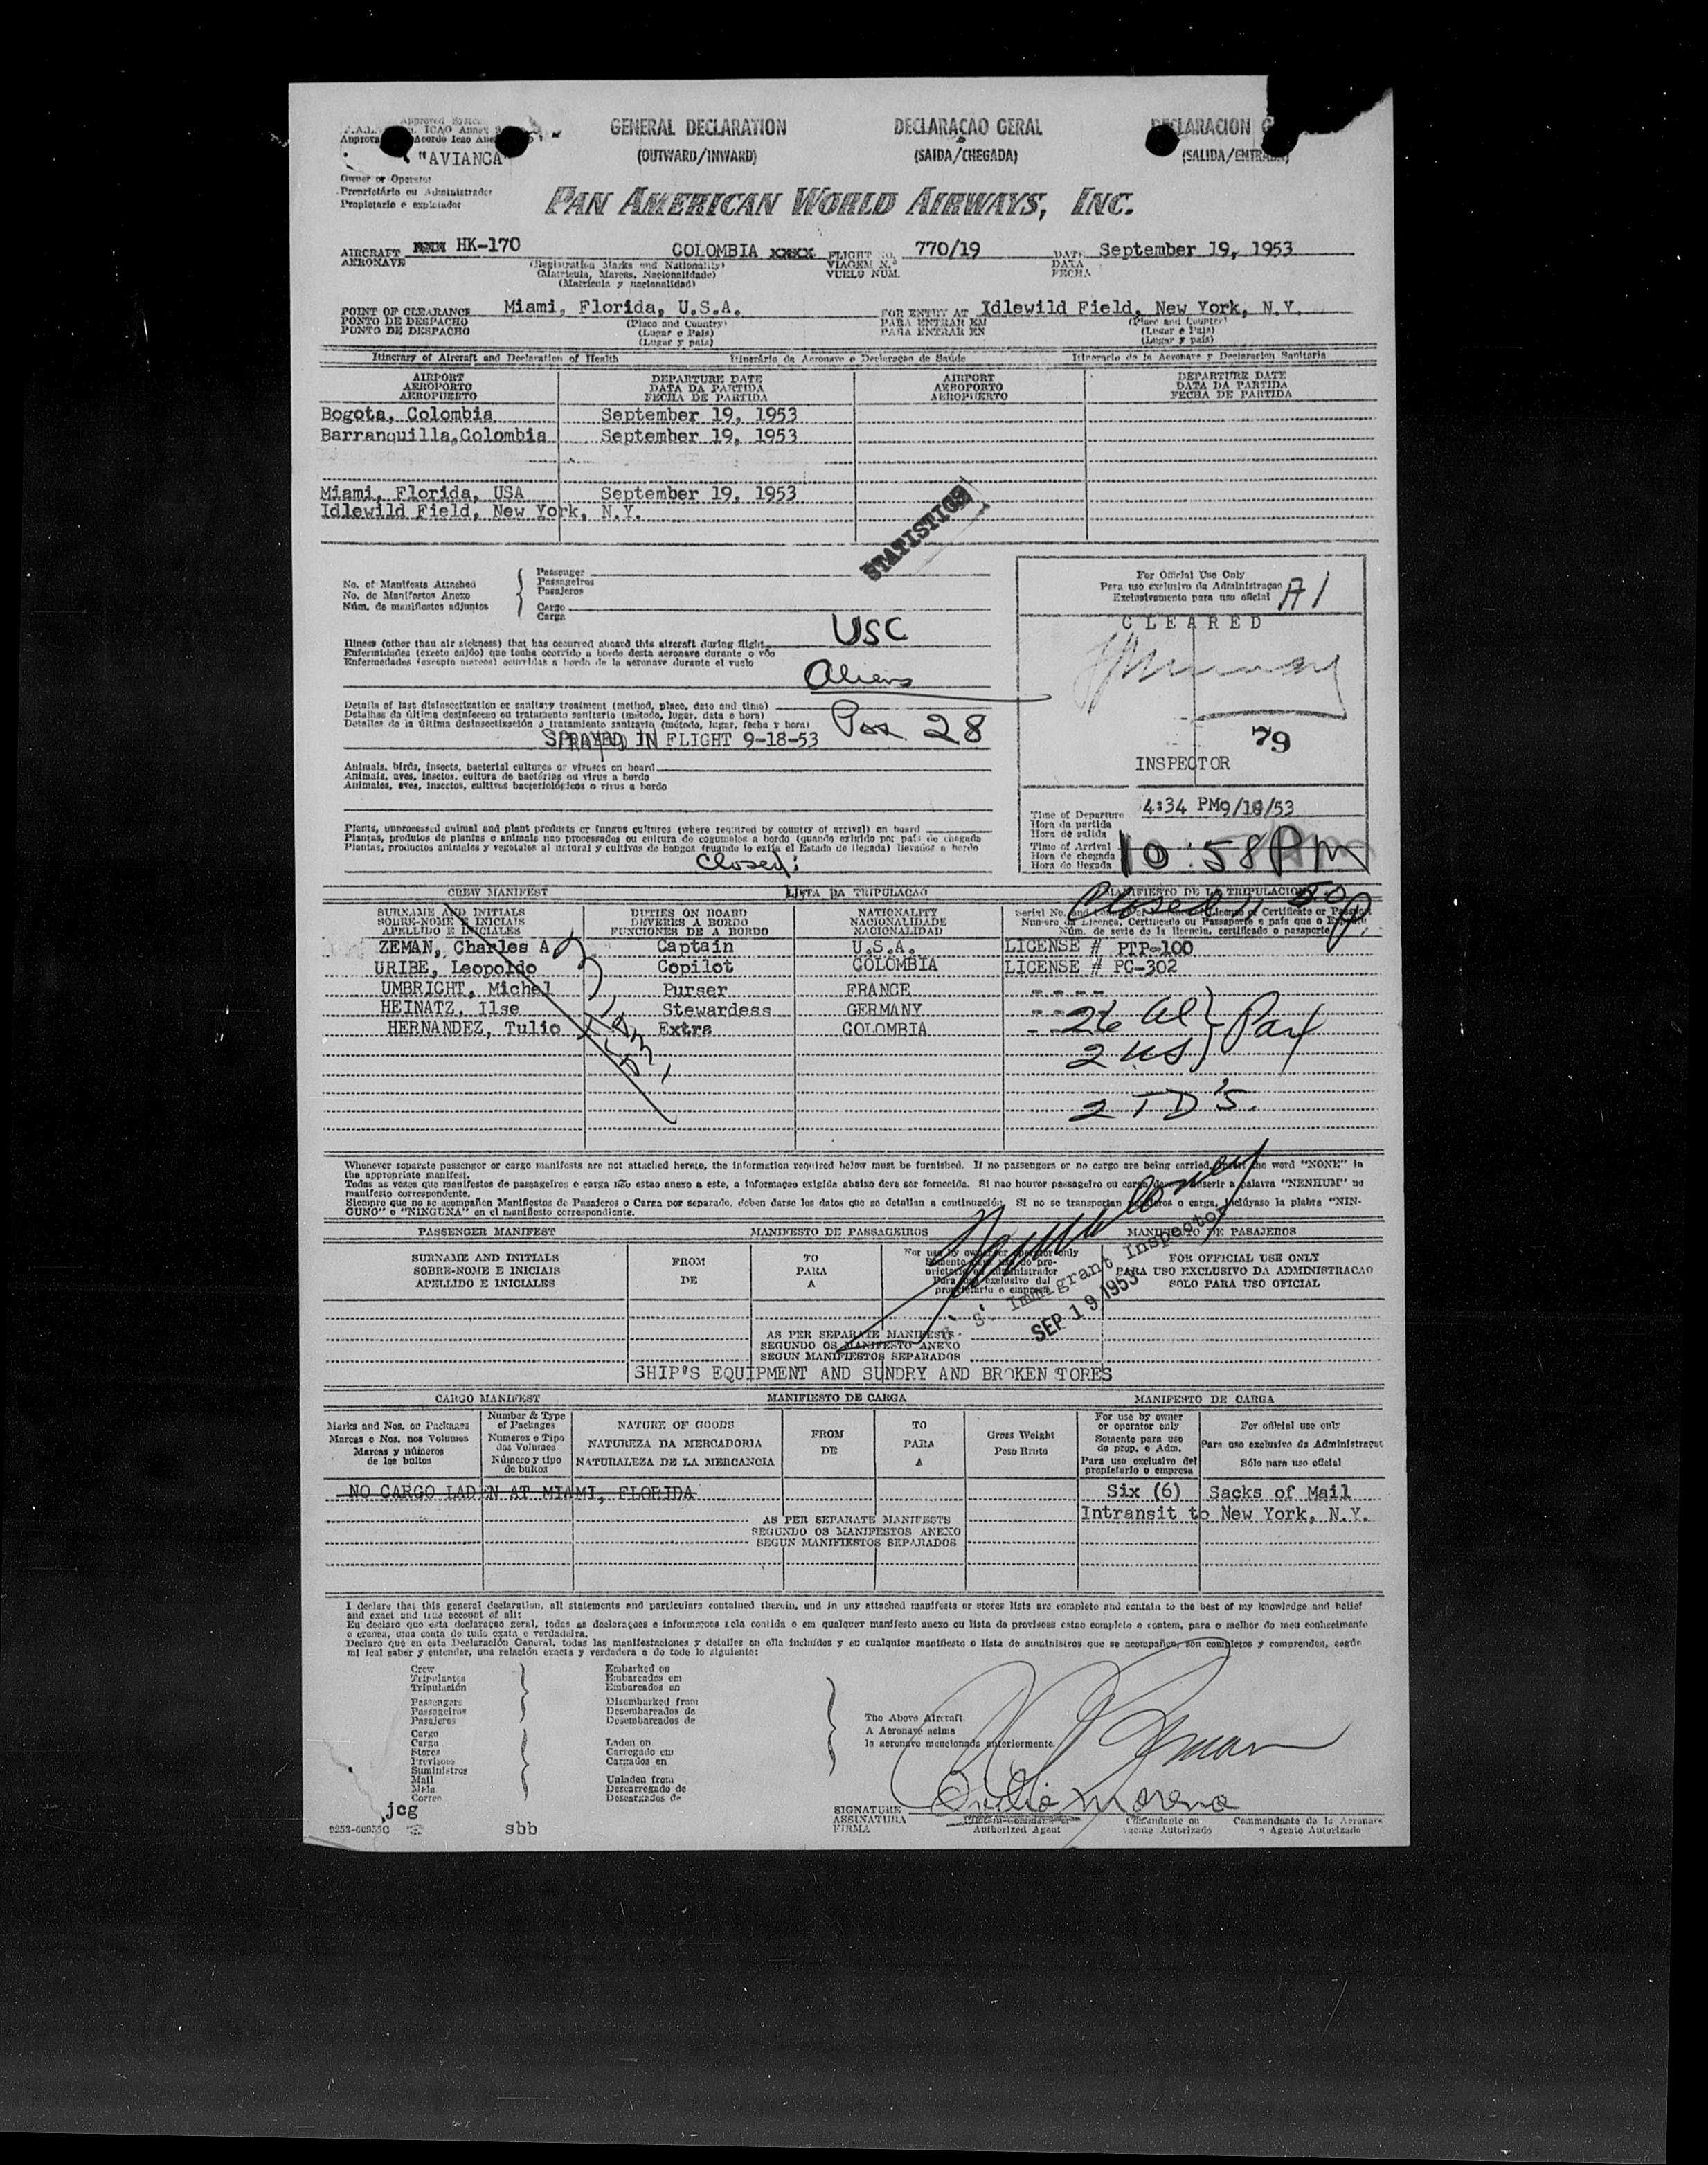 GENERAL DECLARATION
(OUTWARD/INWARD)
DECLARAÇAO GERAL
(SAIDA/CHEGADA)
(SALIDA/ENTRADA)
"AVIANCA"
Owner or Operator
Proprietário ou Administrador
Propietario o explotador
PAN AMERICAN WORLD AIRWAYS, INC.
AIRCRAFT HK-170 COLOMBIA XXXX FLIGHT NO. 770/19 DATE September 19, 1953
AERONAVE (Registration Marks and Nationality) VIAGEM N.º DATA
(Matricula, Marcas, Nacionalidade) VUELO NUM. FECHA
(Matrícula y nacionalidad)
POINT OF CLEARANCE Miami, Florida, U.S.A. FOR ENTRY AT Idlewild Field, New York, N.Y.
PONTO DE DESPACHO (Place and Country) PARA ENTRAR EM (Place and Country)
PUNTO DE DESPACHO (Lugar e Pais) PARA ENTRAR EN (Lugar e Pais)
(Lugar y país) (Lugar y país)
Itinerary of Aircraft and Declaration of Health Itinerário da Aeronave e Declaraçao de Saúde Itinerario de la Aeronave y Declaracion Sanitaria
AIRPORT DEPARTURE DATE AIRPORT DEPARTURE DATE
AEROPORTO DATA DA PARTIDA AEROPORTO DATA DA PARTIDA
AEROPUERTO FECHA DE PARTIDA AEROPUERTO FECHA DE PARTIDA
Bogota, Colombia September 19, 1953
Barranquilla,Colombia September 19, 1953
Miami, Florida, USA September 19, 1953
Idlewild Field, New York, N.Y.
STATISTICS
No. of Manifests Attached
No. de Manifestos Anexo
Núm. de manifiestos adjuntos
Passenger
Passageiros
Pasajeros
Cargo
Carga
For Official Use Only
Para uso exclusivo da Administraçao
Exclusivamente para uso oficial
A1
CLEARED
79
INSPECTOR
USC
Illness (other than air sickness) that has occurred aboard this aircraft during flight
Enfermidades (exceto enjôo) que tenha ocorrido a bordo desta aeronave durante o vôo
Enfermedades (excepto mareos) ocurridas a bordo de la aeronave durante el vuelo
Aliens
Details of last disinsectization or sanitary treatment (method, place, date and time)
Detalhes da última desinfecçao ou tratamento sanitario (método, lugar, data e hora)
Detalles de la última desinsectización o tratamiento sanitario (método, lugar, fecha y hora)
28
SPRAYED IN FLIGHT 9-18-53
Animals, birds, insects, bacterial cultures or viruses on board
Animais, aves, insetos, cultura de bactérias ou virus a bordo
Animales, aves, insectos, cultivos bacteriológicos o virus a bordo
Time of Departure 4:34 PM
Hora da partida
Hora de salida
Time of Arrival 10:58 PM
Hora de chegada
Hora de llegada
Plants, unprocessed animal and plant products or fungus cultures (where required by country of arrival) on board
Plantas, produtos de plantas e animais nao processados ou cultura de cogumelos a bordo (quando exigido por país de chegada
Plantas, productos animales y vegetales al natural y cultivos de hongos (cuando lo exija el Estado de llegada) llevados a bordo
Closed:
Closed
CREW MANIFEST LISTA DA TRIPULACAO MANIFIESTO DE LA TRIPULACION
SURNAME AND INITIALS DUTIES ON BOARD NATIONALITY
SOBRE-NOME E INICIAIS DEVERES A BORDO NACIONALIDADE
APELLIDO E INICIALES FUNCIONES DE A BORDO NACIONALIDAD
Núm. de serie de la licencia, certificado o pasaporte
ZEMAN, Charles A Captain U.S.A. LICENSE # PTP-100
URIBE, Leopoldo Copilot COLOMBIA LICENSE # PC-302
UMBRICHT, Michel Purser FRANCE ----
HEINATZ, Ilse Stewardess GERMANY
HERNANDEZ, Tulio Extra COLOMBIA
26 al } Pax
2 US
2 ID'S.
Whenever separate passenger or cargo manifests are not attached hereto, the information required below must be furnished. If no passengers or no cargo are being carried, insert the word "NONE" in
the appropriate manifest.
Todas as vezes que manifestos de passageiros e carga não estao anexo a este, a informaçao exigida abaixo deve ser fornecida. Si nao houver passageiro ou carga deve-se inserir a palavra "NENHUM" no
manifesto correspondente.
Siempre que no se acompañen Manifiestos de Pasajeros o Carga por separado, deben darse los datos que se detallan a continuación. Si no se transportan pasajeros o carga, inclúyase la plabra "NIN-
GUNO" o "NINGUNA" en el manifiesto correspondiente.
PASSENGER MANIFEST MANIFESTO DE PASSAGEIROS MANIFIESTO DE PASAJEROS
SURNAME AND INITIALS FROM TO For use by owner or operator only FOR OFFICIAL USE ONLY
SOBRE-NOME E INICIAIS DE PARA PARA USO EXCLUSIVO DA ADMINISTRACAO
APELLIDO E INICIALES A SOLO PARA USO OFICIAL
U. S. Immigrant Inspector
SEP 19 1953
AS PER SEPARATE MANIFESTS
SEGUNDO OS MANIFESTO ANEXO
SEGUN MANIFIESTOS SEPARADOS
SHIP'S EQUIPMENT AND SUNDRY AND BROKEN STORES
CARGO MANIFEST MANIFIESTO DE CARGA MANIFESTO DE CARGA
Marks and Nos. on Packages
Marcas e Nos. nos Volumes
Marcas y números
de los bultos
Number & Type
of Packages
Numeros e Tipo
dos Volumes
Número y tipo
de bultos
NATURE OF GOODS
NATUREZA DA MERCADORIA
NATURALEZA DE LA MERCANCIA
FROM
DE
TO
PARA
A
Gross Weight
Peso Bruto
For use by owner
or operator only
Somente para uso
do prop. e Adm.
Para uso exclusivo del
propietario o empresa
For official use only
Para uso exclusivo da Administraçat
Sólo para uso oficial
NO CARGO LADEN AT MIAMI, FLORIDA Six (6) Sacks of Mail
Intransit to New York, N.Y.
AS PER SEPARATE MANIFESTS
SEGUNDO OS MANIFESTOS ANEXO
SEGUN MANIFIESTOS SEPARADOS
I declare that this general declaration, all statements and particulars contained therein, and in any attached manifests or stores lists are complete and contain to the best of my knowledge and belief
and exact and true account of all:
Eu declaro que esta declaraçao geral, todas as declaraçoes e informaçoes nela contida e em qualquer manifesto anexo ou lista de provisoes estao completo e contem, para o melhor do meu conhecimento
e crenca, uma conta de tudo exata e verdadeira.
Declaro que en esta Declaración General, todas las manifestaciones y detalles en ella incluídos y en cualquier manifiesto o lista de suministros que se acompañen, son completos y comprenden, según
mi leal saber y entender, una relación exacta y verdadera a de todo lo siguiente:
Crew
Tripulantes
Tripulación
Passengers
Passageiros
Pasajeros
Cargo
Carga
Stores
Previsoes
Suministros
Mail
Mala
Correo
Embarked on
Embarcados em
Embarcados en
Disembarked from
Desembarcados de
Desembarcados de
Laden on
Carregado em
Cargados en
Unladen from
Descarregado de
Descargados de
The Above Aircraft
A Aeronave acima
la aeronave mencionada anteriormente.
SIGNATURE
ASSINATURA
FIRMA
Authorized Agent
Comandante ou
Agente Autorizado
Commandante de la Aeronave
o Agente Autorizado
jcg
sbb